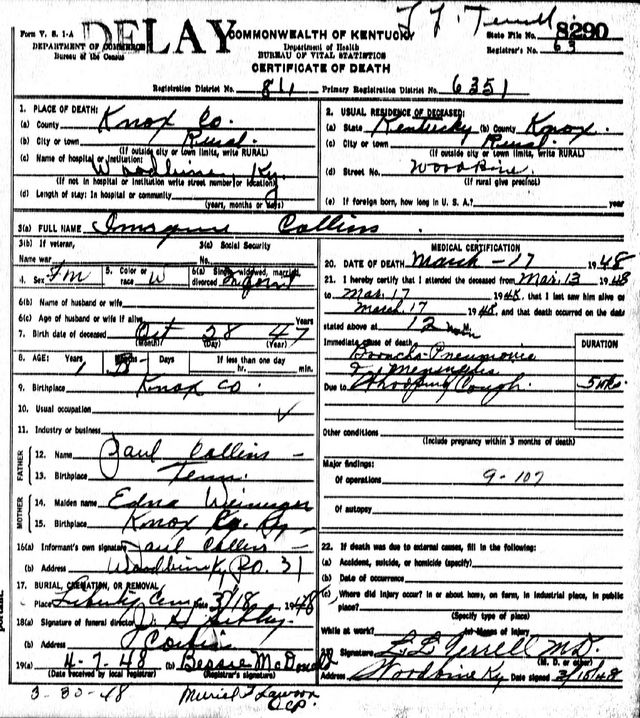 Form V. S. 1-A
DEPARTMENT OF COMMERCE
Bureau of the Census
DELAY
COMMONWEALTH OF KENTUCKY
Department of Health
BUREAU OF VITAL STATISTICS
CERTIFICATE OF DEATH
State File No. 8290
Registrar's No. 63
Registration District No. 84 Primary Registration District No. 6351
1. PLACE OF DEATH:
(a) County Knox Co.
(b) City or town Rural
(If outside city or town limits, write RURAL)
(c) Name of hospital or institution:
Woodbine, Ky
(If not in hospital or institution write street number or location)
(d) Length of stay: In hospital or community
(years, months or days)
2. USUAL RESIDENCE OF DECEASED:
(a) State Kentucky (b) County Knox
(c) City or town Rural
(If outside city or town limits, write RURAL)
(d) Street No. Woodbine
(If rural give precinct)
(e) If foreign born, how long in U. S. A.? year
3(a) FULL NAME Collins
3(b) If veteran,
Name war
3(c) Social Security
No.
4. Sex Fm 5. Color or race W 6(a) Single, widowed, married, divorced Infant
6(b) Name of husband or wife
6(c) Age of husband or wife if alive Years
7. Birth date of deceased Oct 28 47
(Month) (Day) (Year)
8. AGE: Years Months Days If less than one day
hr. min.
9. Birthplace Knox Co.
10. Usual occupation
11. Industry or business
FATHER
12. Name Paul Collins
13. Birthplace Tenn.
MOTHER
14. Maiden name Edna
15. Birthplace Knox Co. Ky
16(a) Informant's own signature Paul Collins
(b) Address Woodbine Ky, P.O. 31
17. BURIAL, CREMATION, OR REMOVAL
Place Liberty Cem Date 3/18 1948
18(a) Signature of funeral director
(b) Address Corbin
19(a) 4-7-48 (b) Bessie McDonald
(Date received by local registrar) (Registrar's signature)
3-30-48
MEDICAL CERTIFICATION
20. DATE OF DEATH March-17 1948
21. I hereby certify that I attended the deceased from Mar. 13 1948
to Mar. 17 1948, that I last saw him alive on
March 17 1948, and that death occurred on the date
stated above at 12 noon
Immediate cause of death
Broncho Pneumonia
DURATION
Due to Whooping Cough. 5 wks.
Other conditions
(Include pregnancy within 3 months of death)
Major findings:
Of operations 9-107
Of autopsy
22. If death was due to external causes, fill in the following:
(a) Accident, suicide, or homicide (specify)
(b) Date of occurrence
(c) Where did injury occur? in or about home, on farm, in industrial place, in public
place?
(Specify type of place)
While at work? Means of injury
23. Signature M.D.
(M. D. or other)
Address Woodbine Ky Date signed 3/18/48